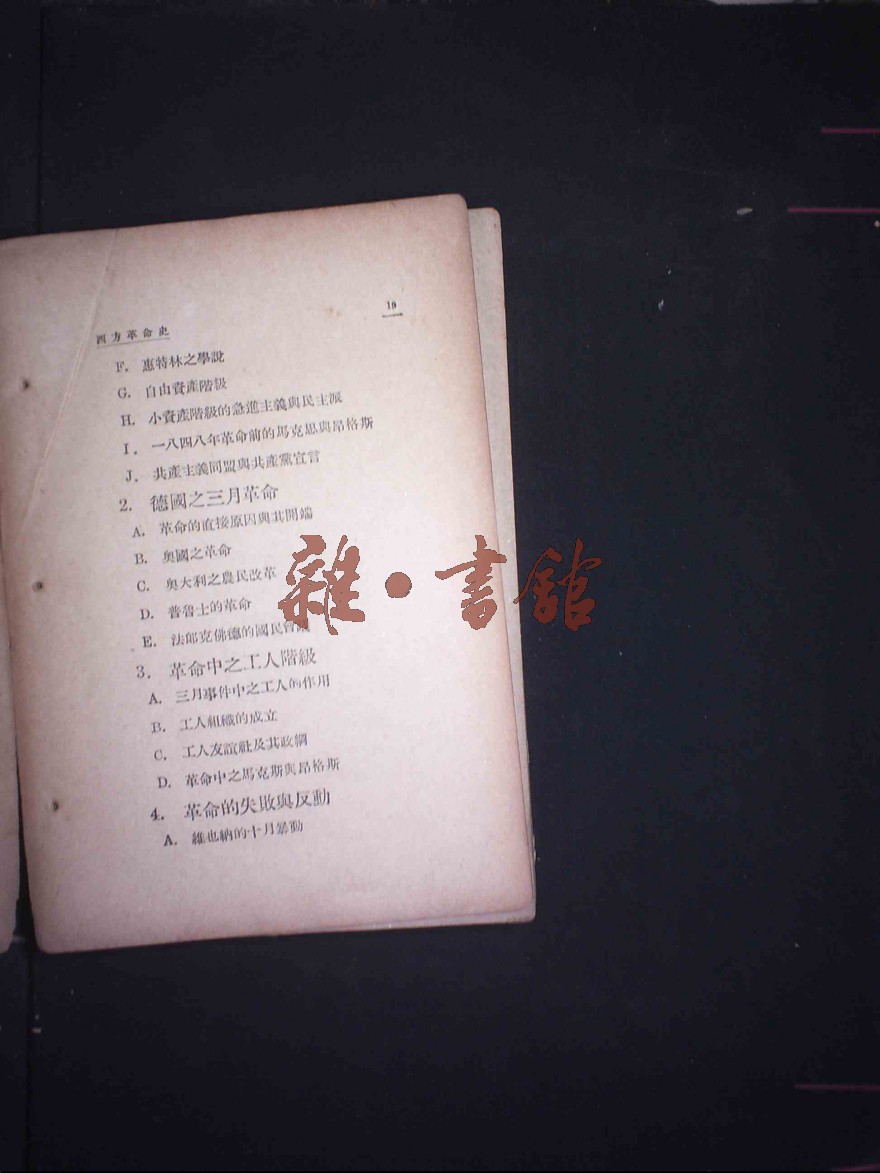 西方革命史
19
F. 惠特林之學說
G. 自由資產階級
H. 小資產階級的急進主義與民主派
I. 一八四八年革命前的馬克思與昂格斯
J. 共產主義同盟與共產黨宣言
2. 德國之三月革命
A. 革命的直接原因與其開端
B. 奧國之革命
C. 奧大利之農民改革
D. 普魯士的革命
E. 法郎克佛德的國民會議
3. 革命中之工人階級
A. 三月事件中之工人的作用
B. 工人組織的成立
C. 工人友誼社及其政綱
D. 革命中之馬克斯與昂格斯
4. 革命的失敗與反動
A. 維也納的十月暴動
雜·書館